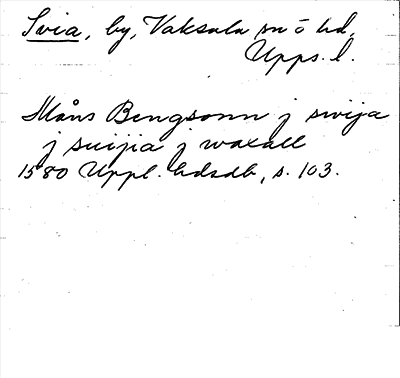 Svia, by, Vaksala sn o hd,
Upps. l.
Måns Bengsonn j swija
j suijia j waxall
1580 Uppl. hdsdb, s. 103.